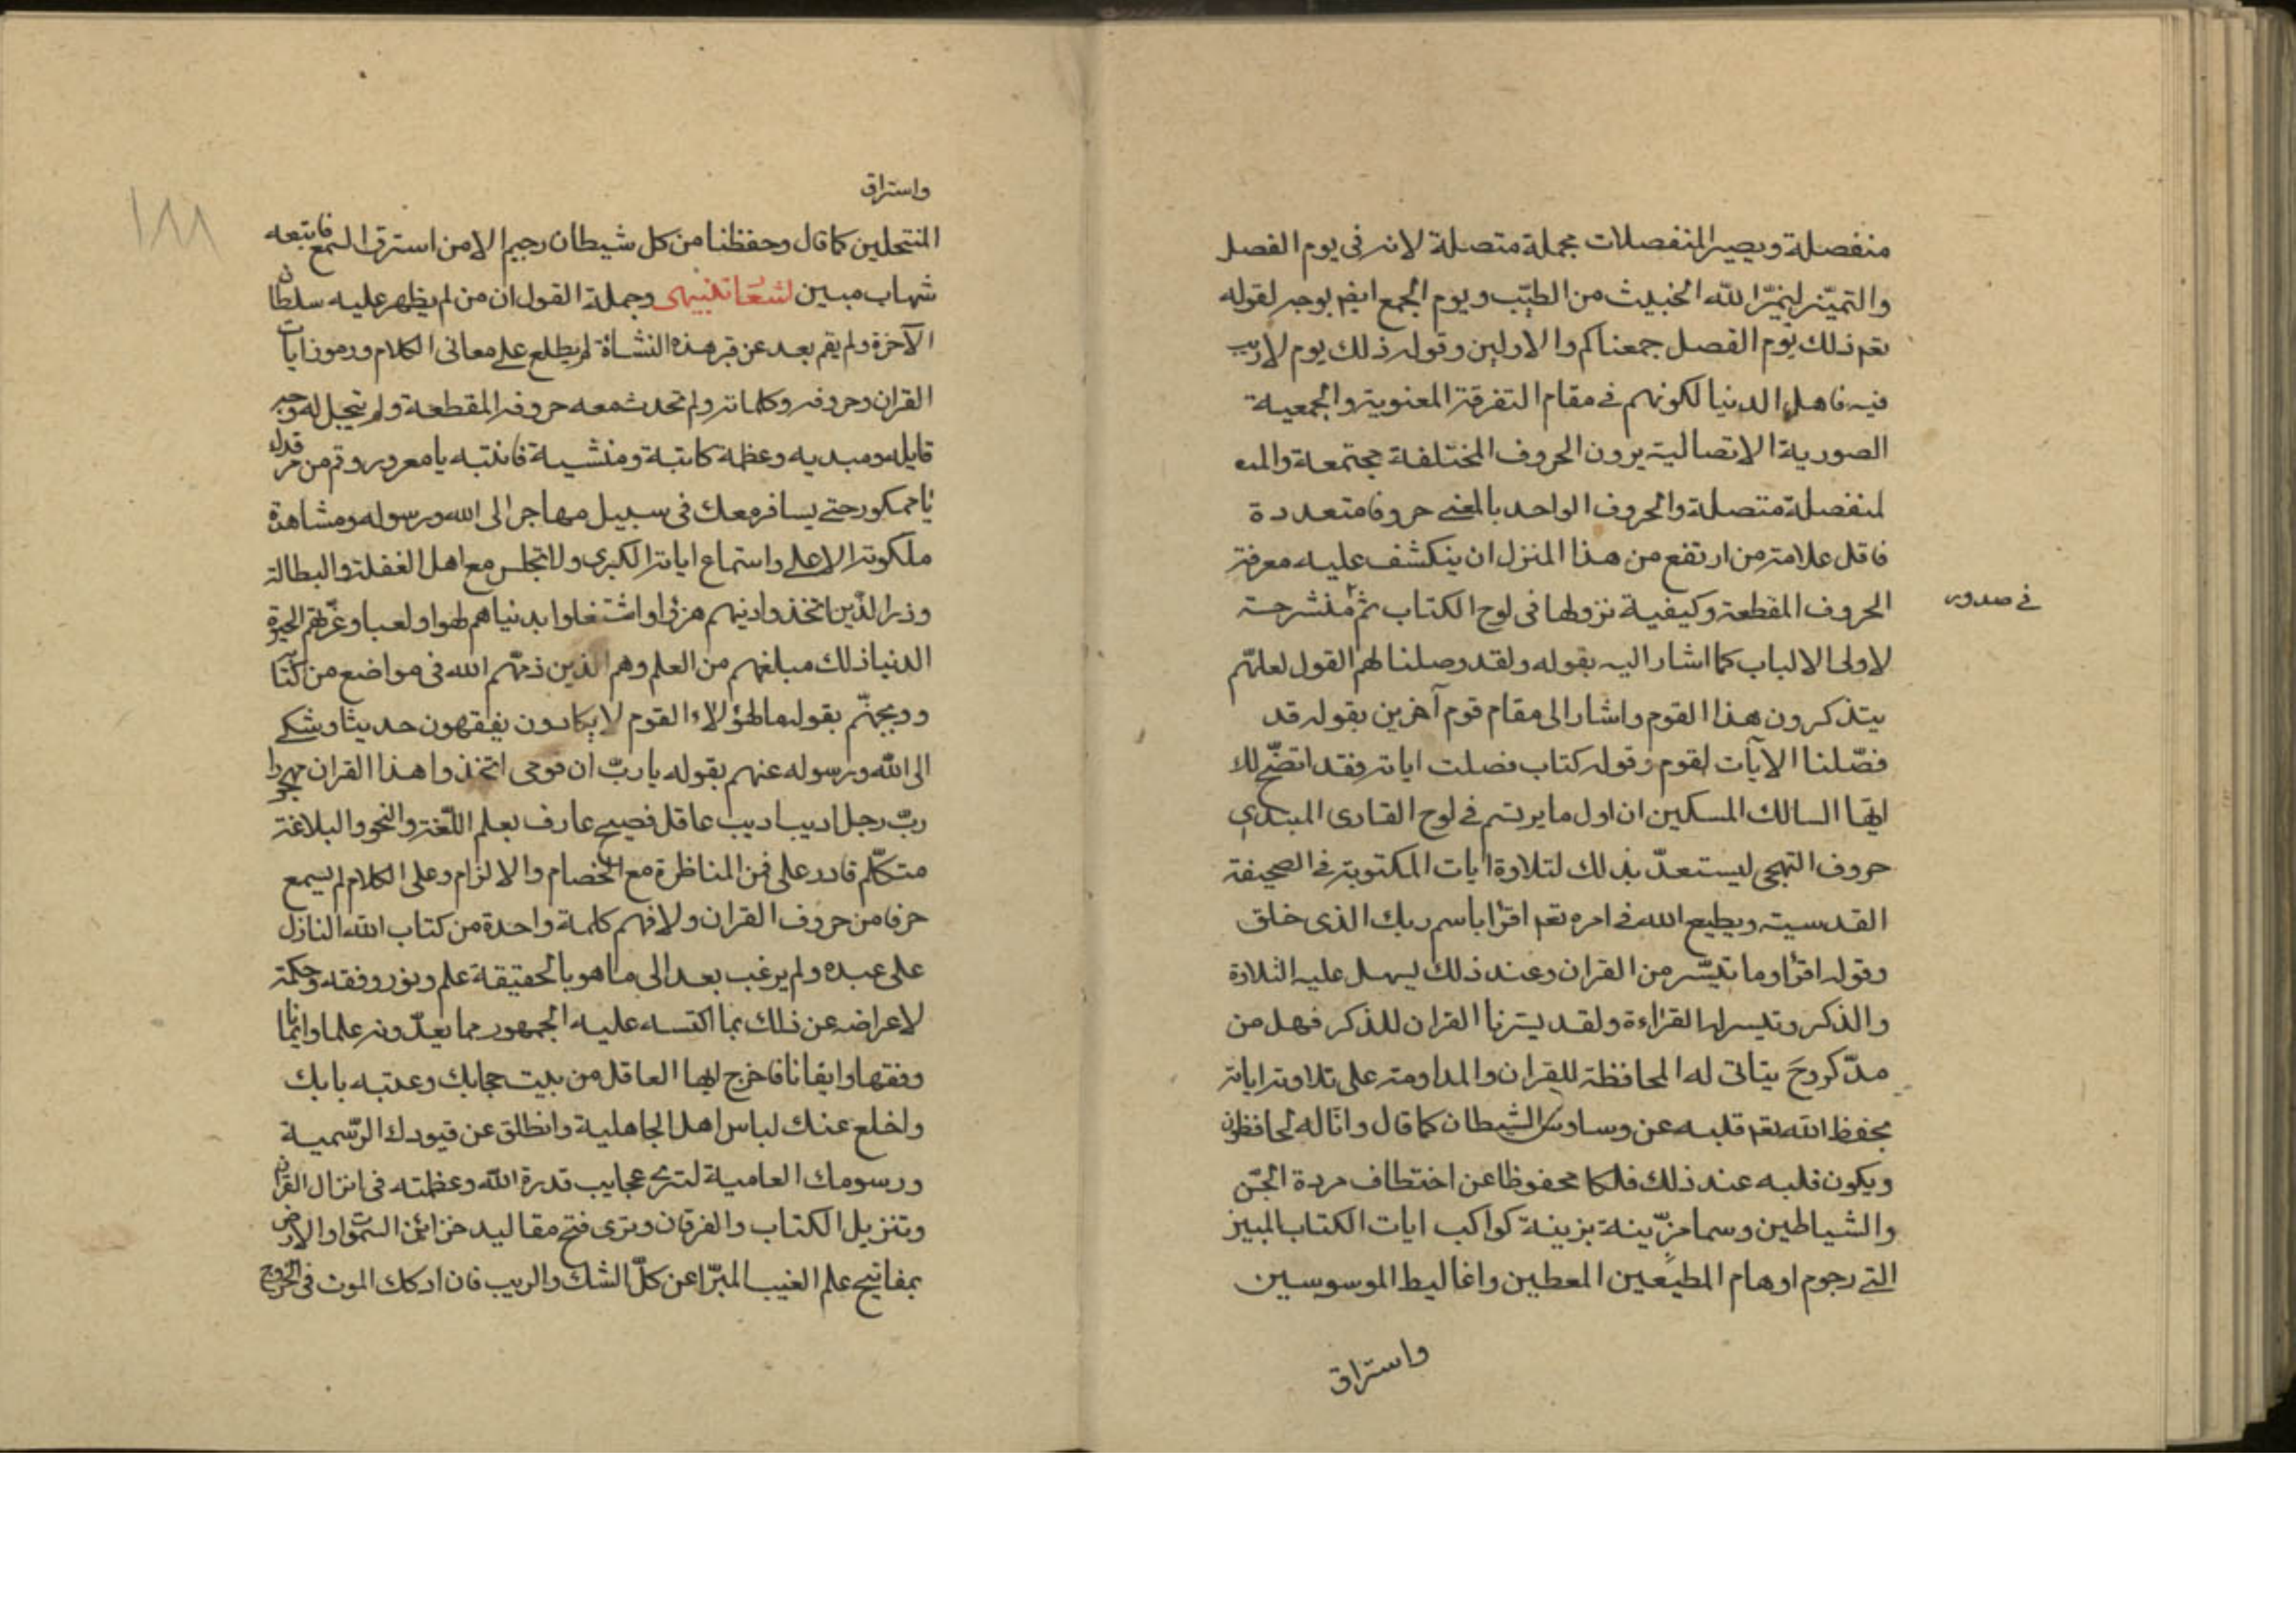 منفصلة ويصير المنفصلات بجملة متصلة لانه في يوم الفصل
والتميّز ليميّز الله الخبيث من الطيّب ويوم الجمع ايضا بوجه لقوله
تعم ذلك يوم الفصل جمعناكم والاولين وقوله ذلك يوم لا ريب
فيه فاهل الدنيا لكونهم في مقام التفرقة المعنوية والجمعية
الصورية الاتصالية يرون الحروف المختلفة مجتمعة والمـ
لمنفصلة متصلة والحروف الواحد بالمعنى حروفا متعددة
فاقل علامة من ارتفع من هذا المنزل ان ينكشف عليه معرفة
الحروف المقطعة وكيفية نزولها في لوح الكتاب ثم منشرحة
في صدور
لاولى الالباب كما اشار اليه بقوله ولقد وصلنا لهم القول لعلهم
يتذكرون هذا القوم واشار الى مقام قوم آخرين بقوله قد
فصّلنا الآيات لقوم وقوله كتاب فصلت اياته فقد اتضح لك
ايها السالك المسكين ان اول ما يرتسم في لوح القارى المبتدي
حروف التهجى ليستعدّ بذلك لتلاوة ايات المكتوبة في الصحيفة
القدسية ويطيع الله في امره تعم اقرا باسم ربك الذى خلق
وقوله اقرؤا وما تيسّر من القران وعند ذلك يسهل عليه التلاوة
والذكر وتيسر له القراءة ولقد يسّرنا القران للذكر فهل من
مدّكر وح يتاتى له المحافظة للقران والمداومة على تلاوة اياته
بحفظ الله تعم قلبه عن وساوس الشيطان كما قال وانا له لحافظون
ويكون قلبه عند ذلك فلكا محفوظا عن اختطاف مردة الجنّ
والشياطين وسما مزّينة بزينة كواكب ايات الكتاب المبين
التى رجوم اوهام المطيعين المعطين واغاليط الموسوسين
واستراق
واستراق
المنتحلين كما قال وحفظنا من كل شيطان رجيم الا من استرق السمع فاتبعه
شهاب مبين وجملة القول ان من لم يظهر عليه سلطان
الآخرة ولم يقم بعد عن قبر هذه النشاة لم يطلع على معانى الكلام ورموز ايات
القران وحروفه وكلماته ولم تحدث معه حروفه المقطعة ولم يتجل له وجه
قايله ومبديه وعظمة كاتبة ومنشية فانتبه يا مغرور وقم من مرقدك
يا ممكور حتى يسافر معك في سبيل مهاجر الى الله ورسوله ومشاهدة
ملكوته الاعلى واستماع اياته الكبرى ولا تجلس مع اهل الغفلة والبطالة
وذر الذين اتخذوا دينهم هزؤا واشتغلوا بدنياهم لهوا ولعبا وغرتهم الحيوة
الدنيا ذلك مبلغهم من العلم وهم الذين ذمّهم الله في مواضع من كتابه
ووبجهم بقوله ما لهؤلاء القوم لا يكادون يفقهون حديثا ويشكى
الى الله ورسوله عنهم بقوله يا ربّ ان قومى اتخذوا هذا القران مهجورا
ربّ رجل اديب اديب عاقل فصيح عارف بعلم اللّغة والنحو والبلاغة
متكلّم قادر على فن المناظرة مع الخصام والالزام وعلى الكلام لم يسمع
حرفا من حروف القران ولا فهم كلمة واحدة من كتاب الله النازل
على عبده ولم يرغب بعد الى ما هو بالحقيقة علم ونور وفقه وحكمة
لاعراضه عن ذلك بما اكتسه عليه الجمهور مما يعدّونه علما وايمانا
وفقها وايقانا فاخرج ايها العاقل من بيت حجابك وعتبه بابك
واخلع عنك لباس اهل الجاهلية وانطلق عن قيودك الرّسمية
ورسومك العامية لترى عجايب قدرة الله وعظمته في انزال القران
وتنزيل الكتاب والفرقان وترى فتح مقاليد خزائن السموات والارض
بمفاتيح علم الغيب المبرّا عن كلّ الشك والريب فان ادركك الموت في الخروج